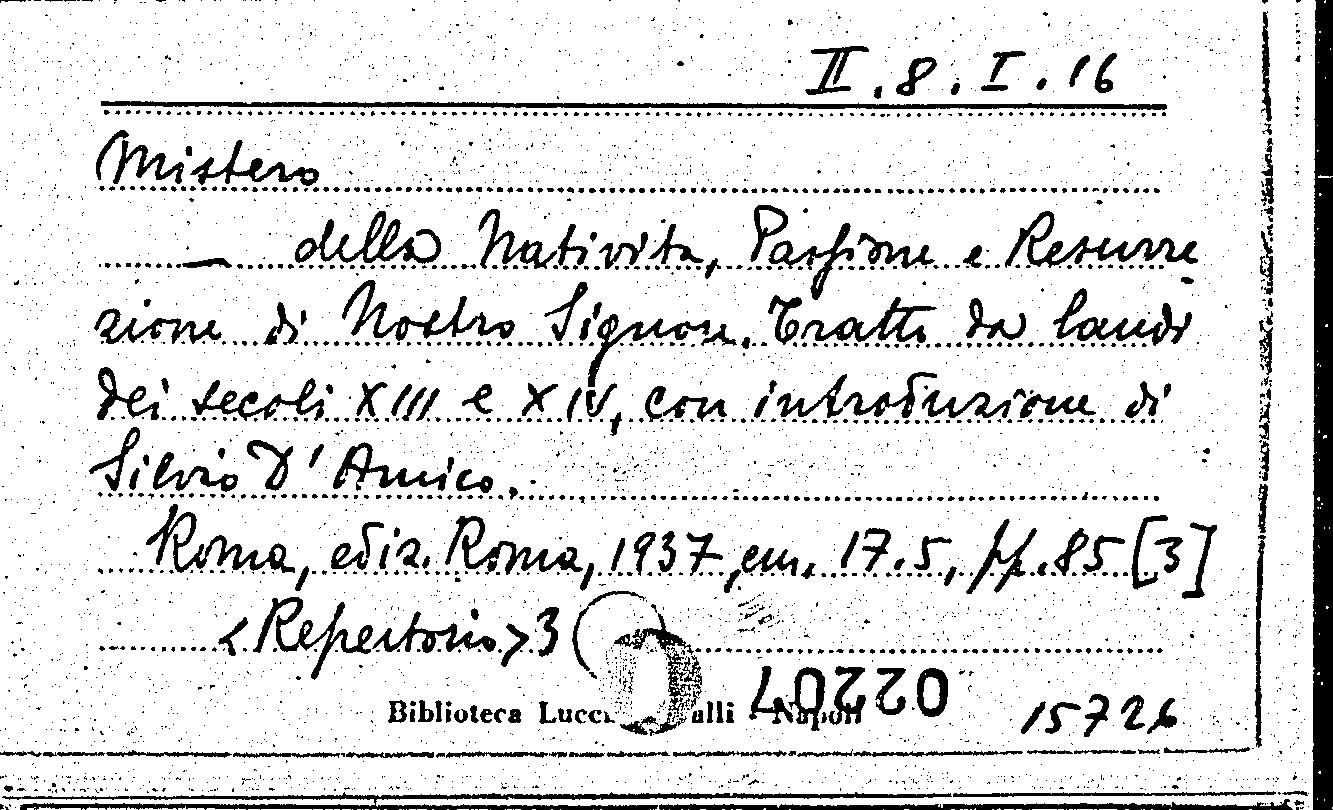 II.8.I.16
Mistero
— della Natività, Passione e Resurre
zione di Nostro Signore. Tratto da laudi
dei secoli XIII e XIV, con introduzione di
Silvio D'Amico.
Roma, ediz. Roma, 1937, cm. 17.5, pp. 85 [3]
<Repertorio> 3
Biblioteca Lucch alli - Napoli
15726